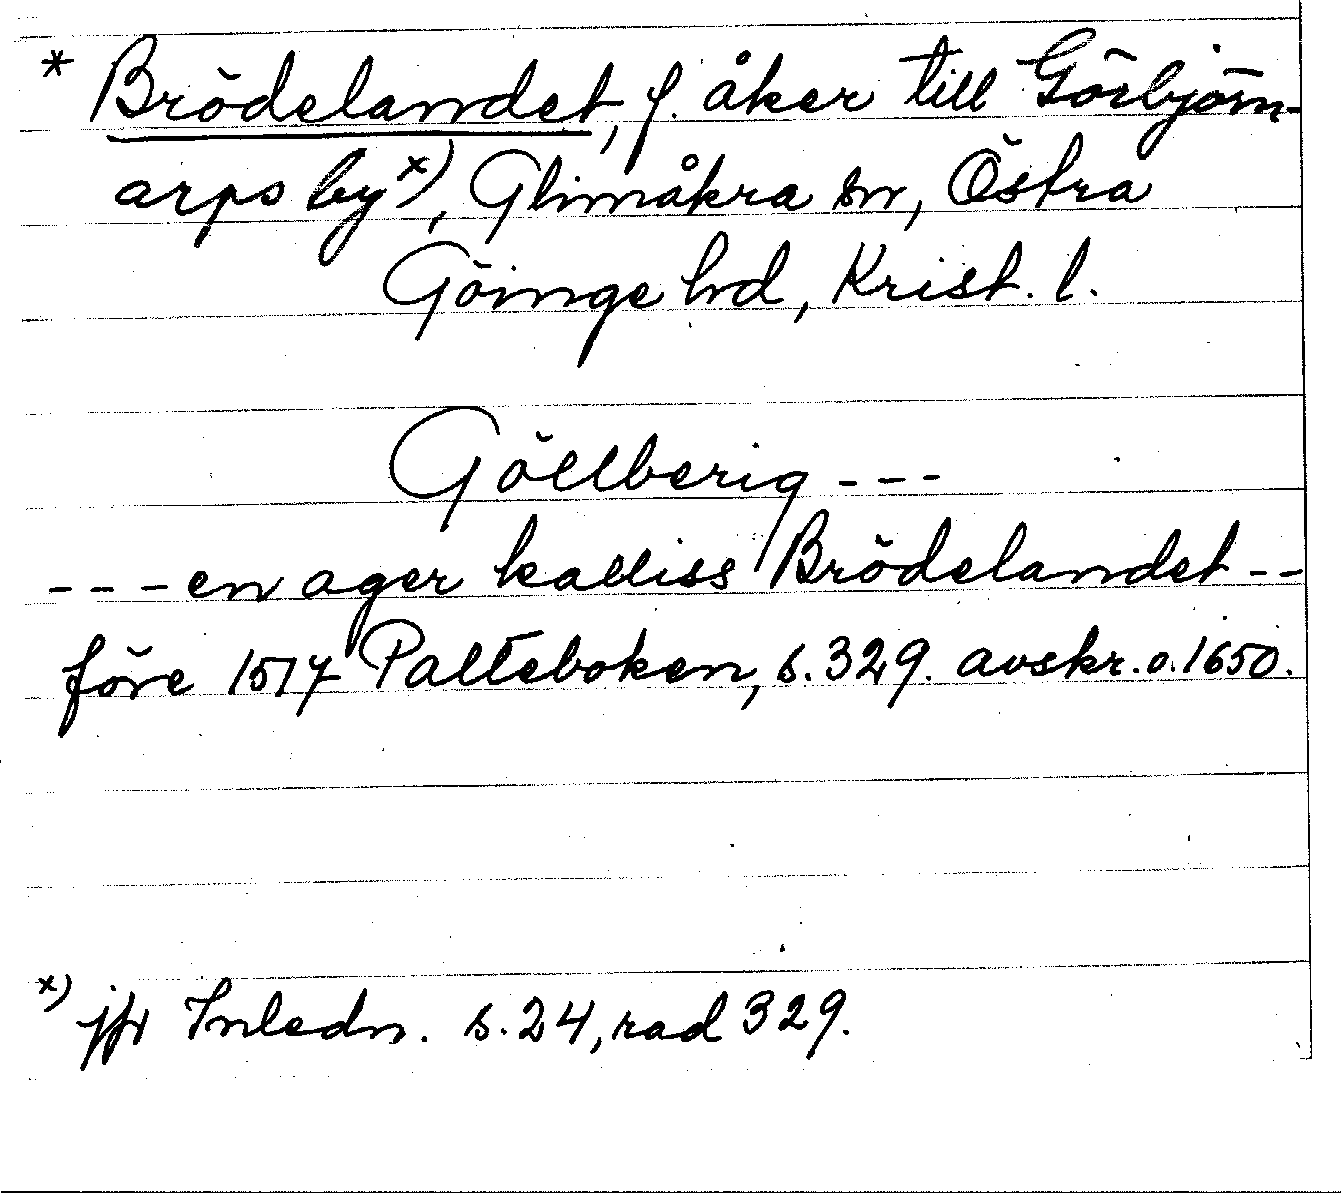 * Brödelandet, f. åker till Görbjörn-
arps by x), Glimåkra sn, Östra
Göinge hd, Krist. l.
Göllberig ---
--- en ager kalliss Brödelandet --
före 1517 Palteboken, s. 329. avskr. o. 1650.
x) jfr Inledn. s. 24, rad 329.